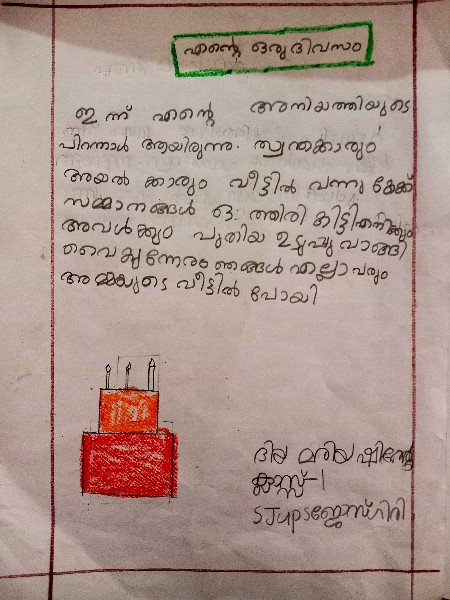 എന്റെ ഒരു ദിവസം
ഇന്ന് എന്റെ അനിയത്തിയുടെ
പിറന്നാൾ ആയിരുന്നു. സ്വന്തക്കാരും
അയൽ ക്കാരും വീട്ടിൽ വന്നു കേക്ക്
സമ്മാനങ്ങൾ ഒ: ത്തിരി കിട്ടി എനിക്കും
അവൾക്കും പുതിയ ഉടുപ്പു വാങ്ങി
വൈകുന്നേരം ഞങ്ങൾ എല്ലാ വരും
അമ്മയുടെ വീട്ടിൽ പോയി
ദിയ മരിയ ഷിന്റോ
ക്ലാസ്സ്-1
SJups